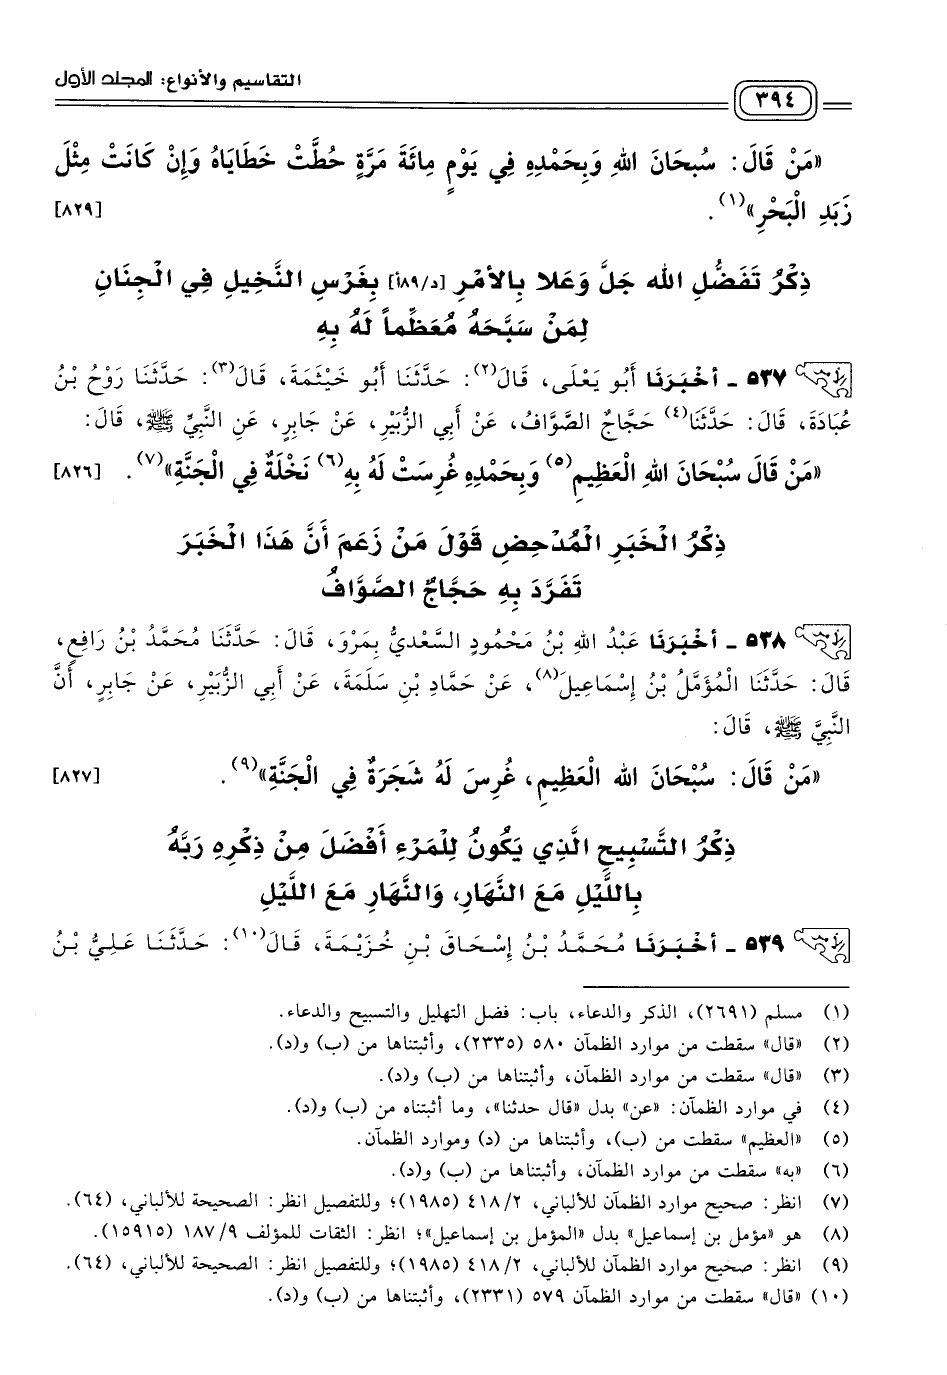 التقاسيم والأنواع: المجلد الأول
٣٩٤
«مَنْ قَالَ: سُبحَانَ اللهِ وَبِحَمْدِهِ فِي يَوْمٍ مِائَةَ مَرَّةٍ حُطَّتْ خَطَايَاهُ وَإِنْ كَانَتْ مِثْلَ
زَبَدِ الْبَحْرِ»(١). [٨٢٩]
ذِكْرُ تَفَضُّلِ الله جَلَّ وَعَلا بِالأمْرِ [د/٨٩أ] بِغَرْسِ النَّخِيلِ فِي الْجِنَانِ
لِمَنْ سَبَّحَهُ مُعَظِّماً لَهُ بِهِ
٥٣٧ ـ أَخْبَرَنَا أَبُو يَعْلَى، قَالَ(٢): حَدَّثَنَا أَبُو خَيْثَمَةَ، قَالَ(٣): حَدَّثَنَا رَوْحُ بْنُ
عُبَادَةَ، قَالَ: حَدَّثَنَا(٤) حَجَّاجٌ الصَّوَّافُ، عَنْ أَبِي الزُّبَيْرِ، عَنْ جَابِرٍ، عَنِ النَّبِيِّ ﷺ، قَالَ:
«مَنْ قَالَ سُبْحَانَ اللهِ الْعَظِيمِ(٥) وَبِحَمْدِهِ غُرِسَتْ لَهُ بِهِ(٦) نَخْلَةٌ فِي الْجَنَّةِ»(٧). [٨٢٦]
ذِكْرُ الْخَبَرِ الْمُدْحِضِ قَوْلَ مَنْ زَعَمَ أَنَّ هَذَا الْخَبَرَ
تَفَرَّدَ بِهِ حَجَّاجٌ الصَّوَّافُ
٥٣٨ ـ أَخْبَرَنَا عَبْدُ اللهِ بْنُ مَحْمُودٍ السَّعْدِيُّ بِمَرْوَ، قَالَ: حَدَّثَنَا مُحَمَّدُ بْنُ رَافِعٍ،
قَالَ: حَدَّثَنَا الْمُؤَمَّلُ بْنُ إِسْمَاعِيلَ(٨)، عَنْ حَمَّادِ بْنِ سَلَمَةَ، عَنْ أَبِي الزُّبَيْرِ، عَنْ جَابِرٍ، أَنَّ
النَّبِيَّ ﷺ، قَالَ:
«مَنْ قَالَ: سُبْحَانَ الله الْعَظِيمِ، غُرِسَ لَهُ شَجَرَةٌ فِي الْجَنَّةِ»(٩). [٨٢٧]
ذِكْرُ التَّسْبِيحِ الَّذِي يَكُونُ لِلْمَرْءِ أَفْضَلَ مِنْ ذِكْرِهِ رَبَّهُ
بِاللَّيْلِ مَعَ النَّهَارِ، وَالنَّهَارِ مَعَ اللَّيْلِ
٥٣٩ ـ أَخْبَرَنَا مُحَمَّدُ بْنُ إِسْحَاقَ بْنِ خُزَيْمَةَ، قَالَ(١٠): حَدَّثَنَا عَلِيُّ بْنُ
(١) مسلم (٢٦٩١)، الذكر والدعاء، باب: فضل التهليل والتسبيح والدعاء.
(٢) «قال» سقطت من موارد الظمآن ٥٨٠ (٢٣٣٥)، وأثبتناها من (ب) و(د).
(٣) «قال» سقطت من موارد الظمآن، وأثبتناها من (ب) و(د).
(٤) في موارد الظمآن: «عن» بدل «قال حدثنا»، وما أثبتناه من (ب) و(د).
(٥) «العظيم» سقطت من (ب)، وأثبتناها من (د) وموارد الظمآن.
(٦) «به» سقطت من موارد الظمآن، وأثبتناها من (ب) و(د).
(٧) انظر: صحيح موارد الظمآن للألباني، ٤١٨/٢ (١٩٨٥)؛ وللتفصيل انظر: الصحيحة للألباني، (٦٤).
(٨) هو «مؤمل بن إسماعيل» بدل «المؤمل بن إسماعيل»؛ انظر: الثقات للمؤلف ١٨٧/٩ (١٥٩١٥).
(٩) انظر: صحيح موارد الظمآن للألباني، ٤١٨/٢ (١٩٨٥)؛ وللتفصيل انظر: الصحيحة للألباني، (٦٤).
(١٠) «قال» سقطت من موارد الظمآن ٥٧٩ (٢٣٣١)، وأثبتناها من (ب) و(د).